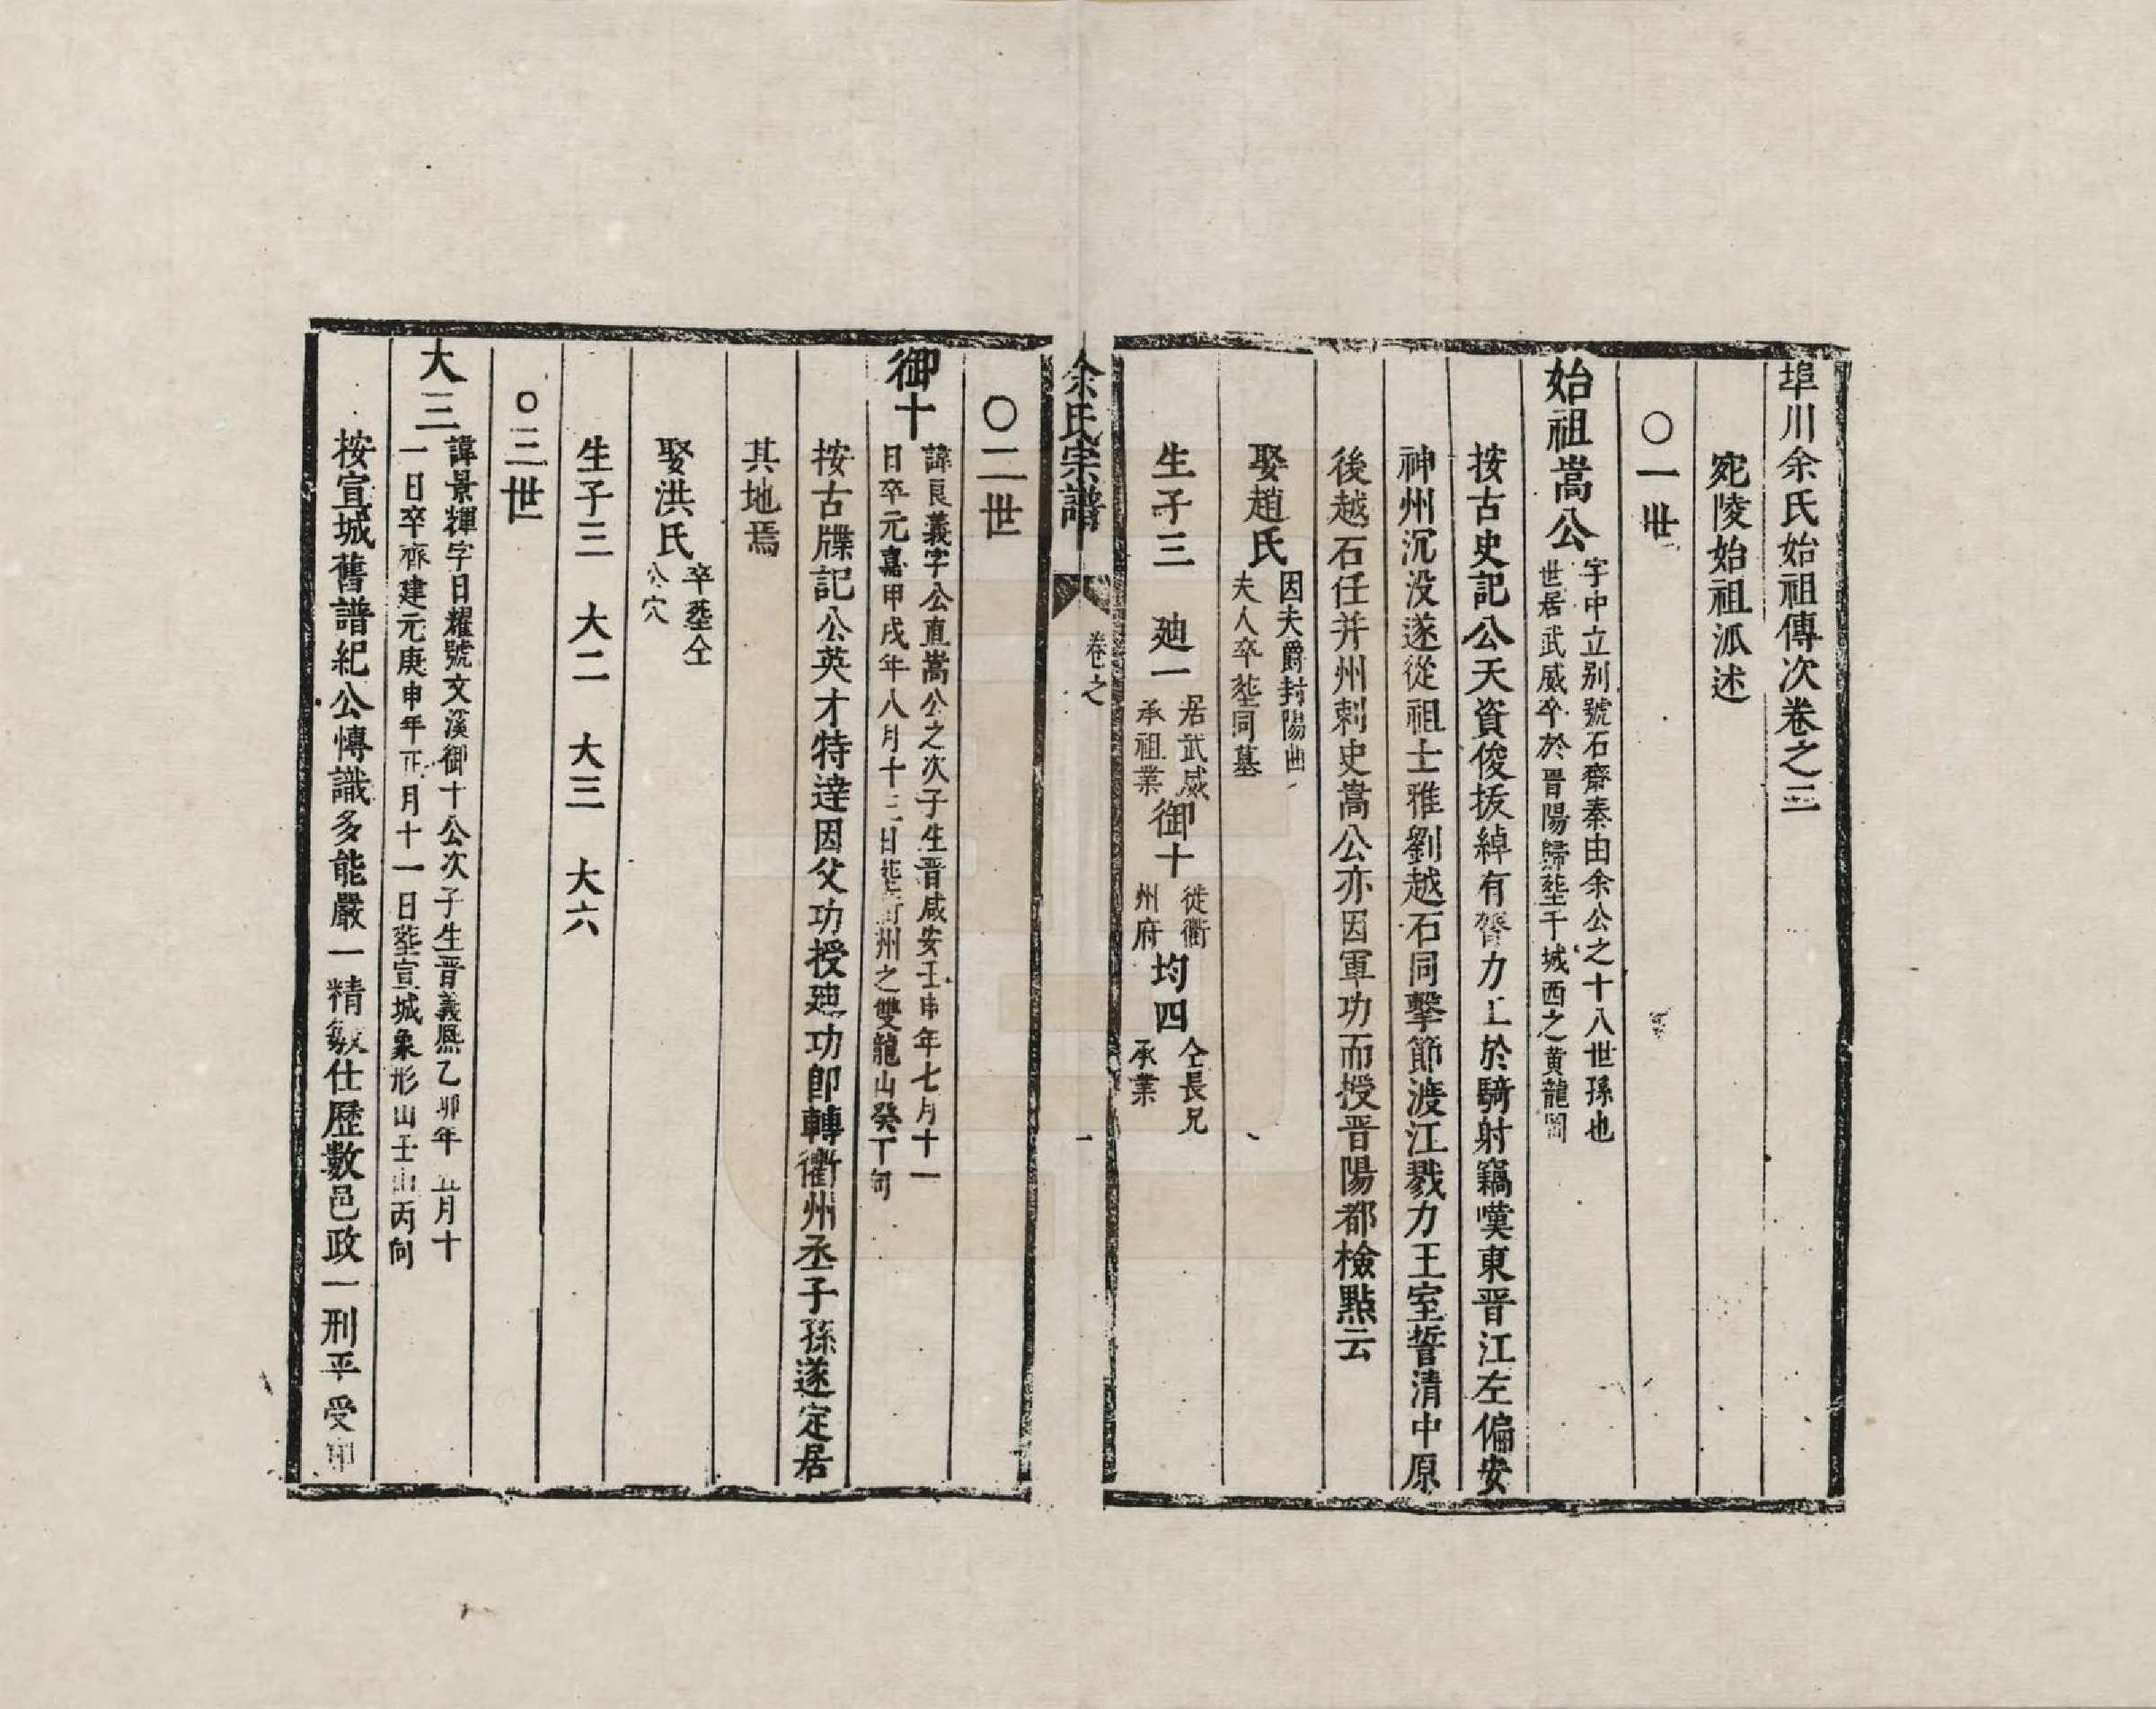 埠川余氏始祖傳次卷之三
宛陵始祖派述
〇一世
始祖嵩公
字中立别號石齋秦由余公之十八世孫也
世居武威卒於晋陽歸塟于城西之黄龍岡
按古史記公天資俊抜綽有膂力工於騎射竊嘆東晋江左偏安
神州沉没遂從祖士雅劉越石同擊節渡江戮力王室誓清中原
後越石任并州刺史嵩公亦因軍功而授晋陽都檢點云
娶趙氏
因夫爵封陽曲
夫人卒塟同墓
生子三 廸一
居武威
承祖業
御十
徙衢
州府
均四
仝長兄
承業
余氏宗譜
卷之
一
〇二世
御十
諱良義字公直嵩公之次子生晋咸安壬申年七月十一
日卒元嘉甲戌年八月十二日塟衢州之雙龍山癸丁向
按古牒記公英才特達因父功授廸功郎轉衢州丞子孫遂定居
其地焉
娶洪氏
卒塟仝
公穴
生子三 大二 大三 大六
〇三世
大三
諱景輝字日耀號文溪御十公次子生晋義熈乙卯年五月十
一日卒齊建元庚申年正月十一日塟宣城象形山壬山丙向
按宣城舊譜紀公慱識多能嚴一精敏仕歷數邑政一刑平受